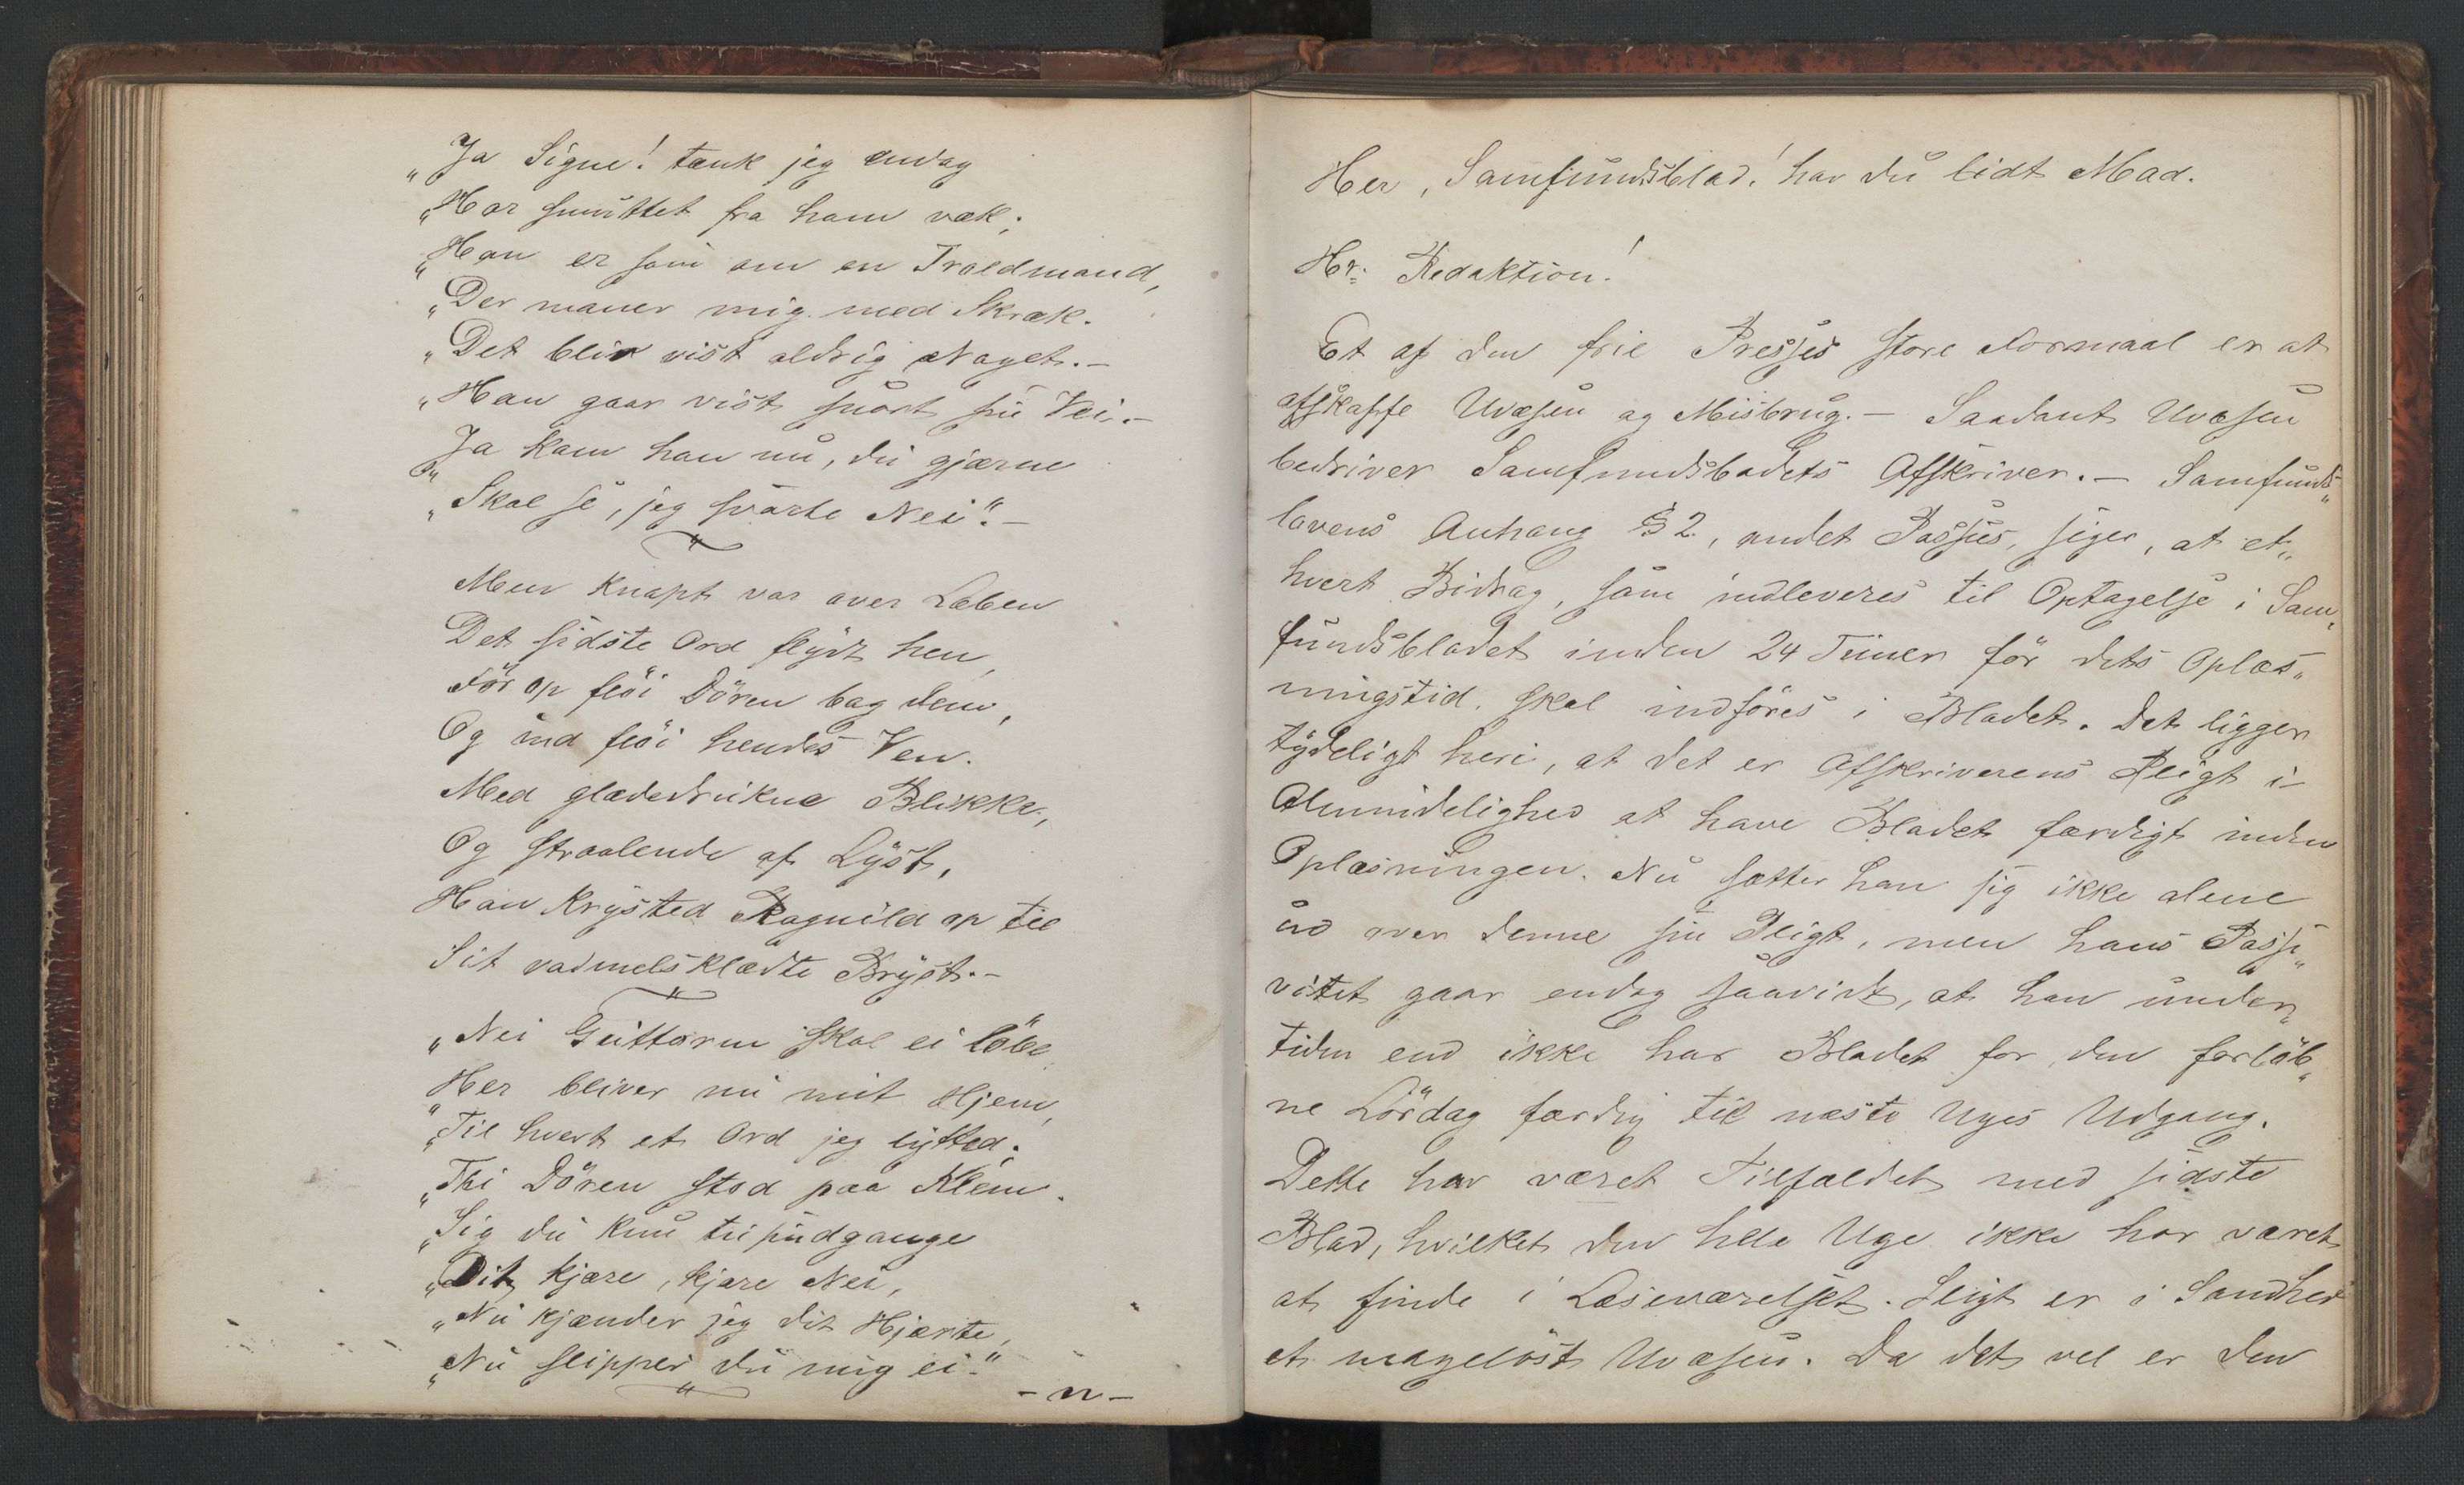 „Ja Signe! tænk jeg endog
„Har smuttet fra ham væk;
„Han er som om en Troldmand,
„Der maner mig med Skræk.
„Det blir vist aldrig Noget.—
„Han gaar vist snart sin Vei.—
„Ja kom han nu, du gjærne
„Skal se, jeg svarte Nei“.—
Men knapt var over Læben
Det sidste Ord flydt hen,
Før op fløi Døren bag dem,
Og ind fløi hendes Ven.
Med glædedrukne Blikke,
Og straalende af Lyst,
Han krysted Ragnild op til
Sit vadmelsklædte Bryst.—
„Nei Guttorm skal ei løbe
„Her bliver nu mit Hjem,
„Til hvert et Ord jeg lytted;
„Thi Døren stod paa Klem.
„Sig du kun tusindgange
„Dit kjære, kjære Nei,
„Nu kjænder jeg dit Hjærte,
„Nu slipper du mig ei.“
- n -
Her, Samfundsblad! har du lidt Mad.
Hr. Redaktion!
Et af den frie Presses store Formaal er at
afskaffe Uvæsen og Misbrug.— Saadant Uvæsen
bedriver Samfundsbadets Afskriver.— Samfunds„
lovens Anhang § 2, andet Passus, siger, at et„
hvert Bidrag, som indleveres til Optagelse i Sam„
fundsbladet inden 24 Timer før dets Oplæs„
ningstid, skal indføres i Bladet. Det ligger
tydeligt heri, at det er Afskriverens Pligt i
Almindelighed at have Bladet færdigt inden
Oplæsningen. Nu sætter han sig ikke alene
ud over denne sin Pligt, men hans Passi„
vitet gaar endog saavidt, at han under„
tiden end ikke har Bladet for den forløb„
ne Lørdag færdig til næste Uges Udgang.
Dette har været Tilfældet med sidste
Blad, hvilket den hele Uge ikke har været
at finde i Læseværelset. Sligt er i Sandhed
et mageløst Uvæsen. Da det vel er den